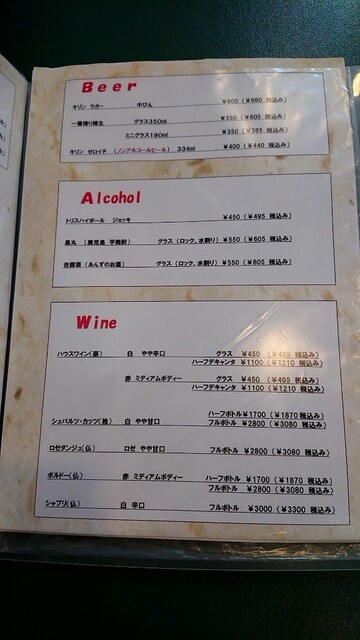 Beer
キリン ラガー 中びん ¥800 (¥880 税込み)
一番搾り樽生 グラス350ml ¥550 (¥605 税込み)
ミニグラス180ml ¥350 (¥385 税込み)
キリン ゼロイチ (ノンアルコールビール) 334ml ¥400 (¥440 税込み)
Alcohol
トリスハイボール ジョッキ ¥450 (¥495 税込み)
黒丸 (鹿児島 芋焼酎) グラス (ロック、水割り) ¥550 (¥605 税込み)
杏露酒 (あんずのお酒) グラス (ロック、水割り) ¥550 (¥605 税込み)
Wine
ハウスワイン(豪) 白 やや辛口 グラス ¥450 (¥495 税込み)
ハーフデキャンタ ¥1100 (¥1210 税込み)
赤 ミディアムボディー グラス ¥450 (¥495 税込み)
ハーフデキャンタ ¥1100 (¥1210 税込み)
ハーフボトル ¥1700 (¥1870 税込み)
シュバルツ・カッツ(独) 白 やや甘口 フルボトル ¥2800 (¥3080 税込み)
ロゼダンジュ(仏) ロゼ やや甘口 フルボトル ¥2800 (¥3080 税込み)
ボルドー(仏) 赤 ミディアムボディー ハーフボトル ¥1700 (¥1870 税込み)
フルボトル ¥2800 (¥3080 税込み)
シャブリ(仏) 白 辛口 フルボトル ¥3000 (¥3300 税込み)